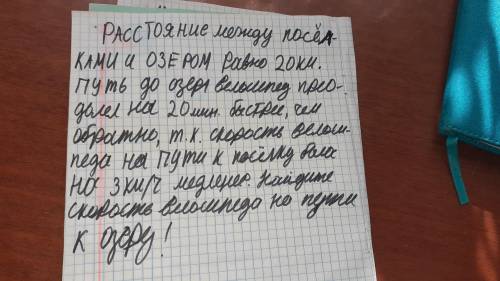 РАССТОЯНИЕ между посёл-
КАМИ и ОЗЕРОМ равно 20км.
Путь до озера велосипед прео-
долел на 20 мин. быстрее, чем
обратно, т.к. скорость велоси-
педа на пути к посёлку была
на 3км/ч медленее. Найдите
скорость велосипеда на пути
к озеру!